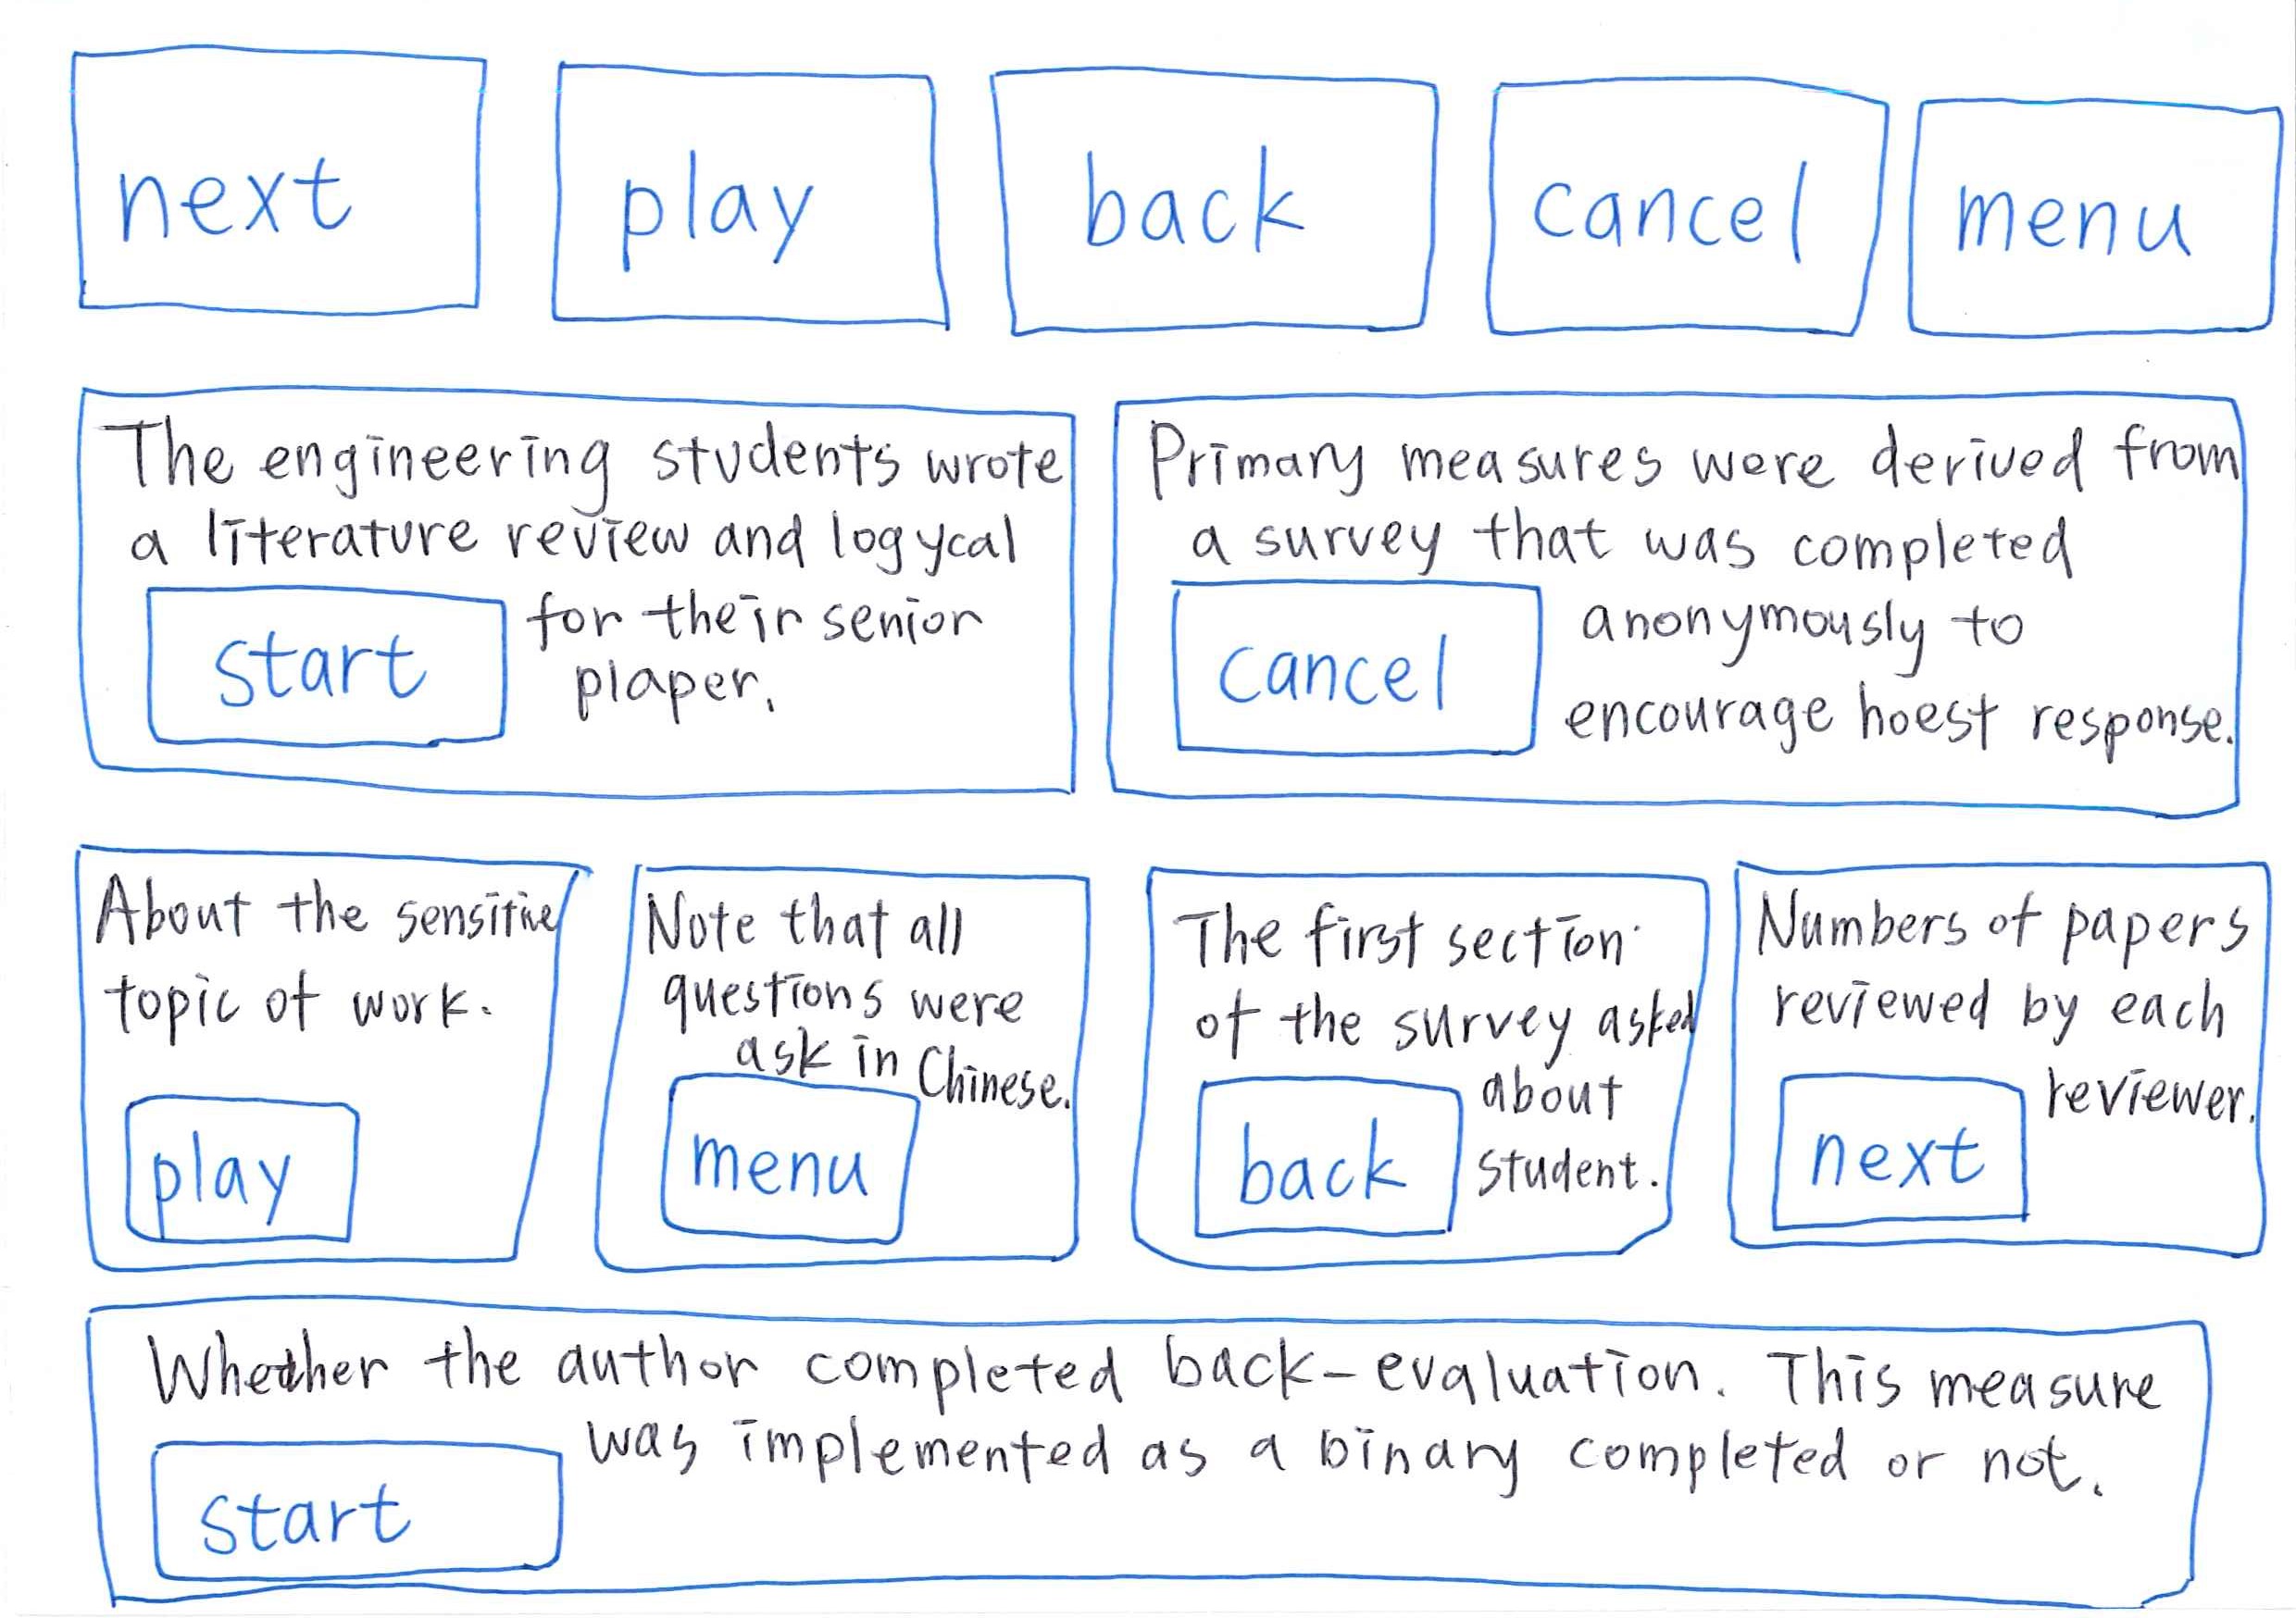 next
play
back
cancel
menu
The engineering students wrote
a literature review and logycal
for their senior
plaper.
start
Primary measures were derived from
a survey that was completed
anonymously to
encourage hoest response.
cancel
About the sensitive
topic of work.
play
Note that all
questions were
ask in Chinese.
menu
The first section
of the survey asked
about
student.
back
Numbers of papers
reviewed by each
reviewer.
next
Whether the author completed back-evaluation. This measure
was implemented as a binary completed or not.
start